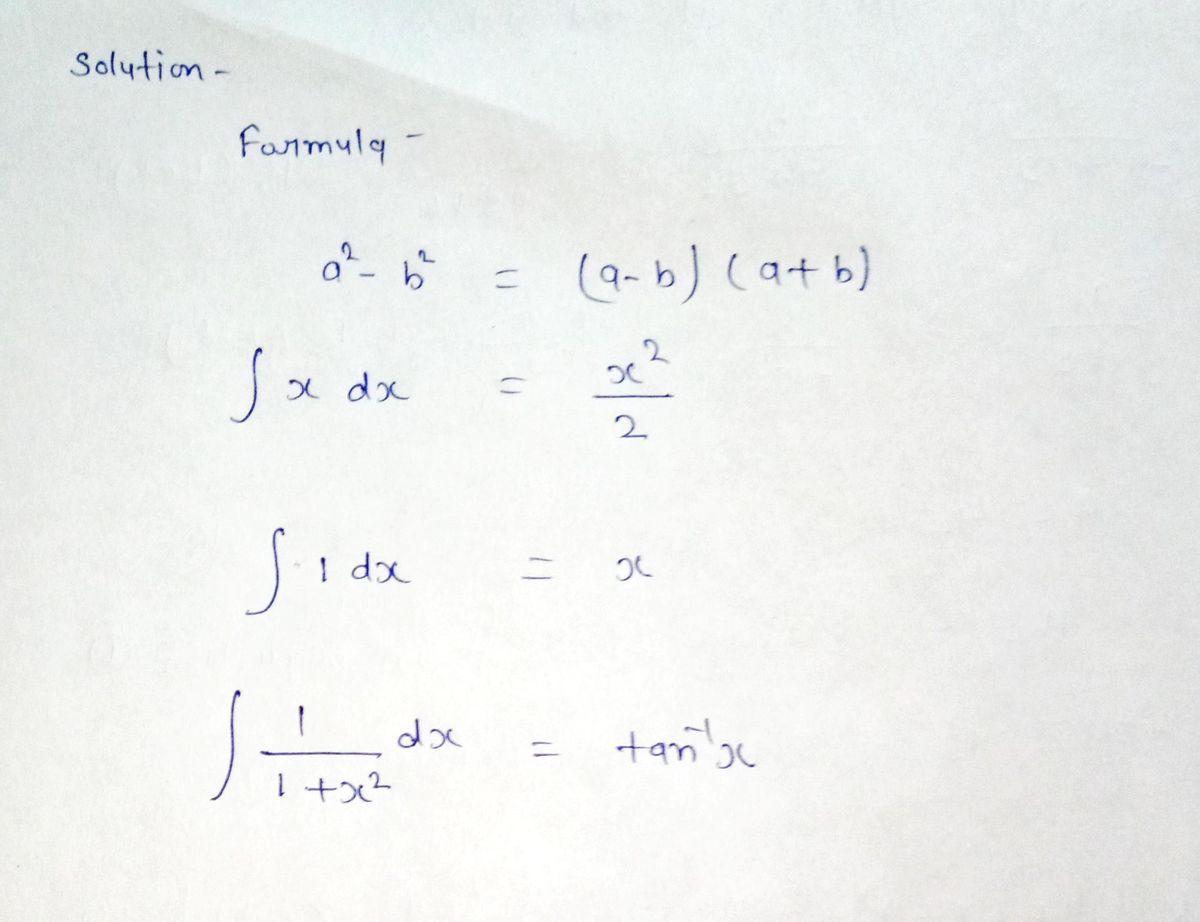 Solution -
Formula -
a² - b² = (a-b) (a+b)
∫ x dx = x²/2
∫ 1 dx = x
∫ 1/(1+x²) dx = tan⁻¹x